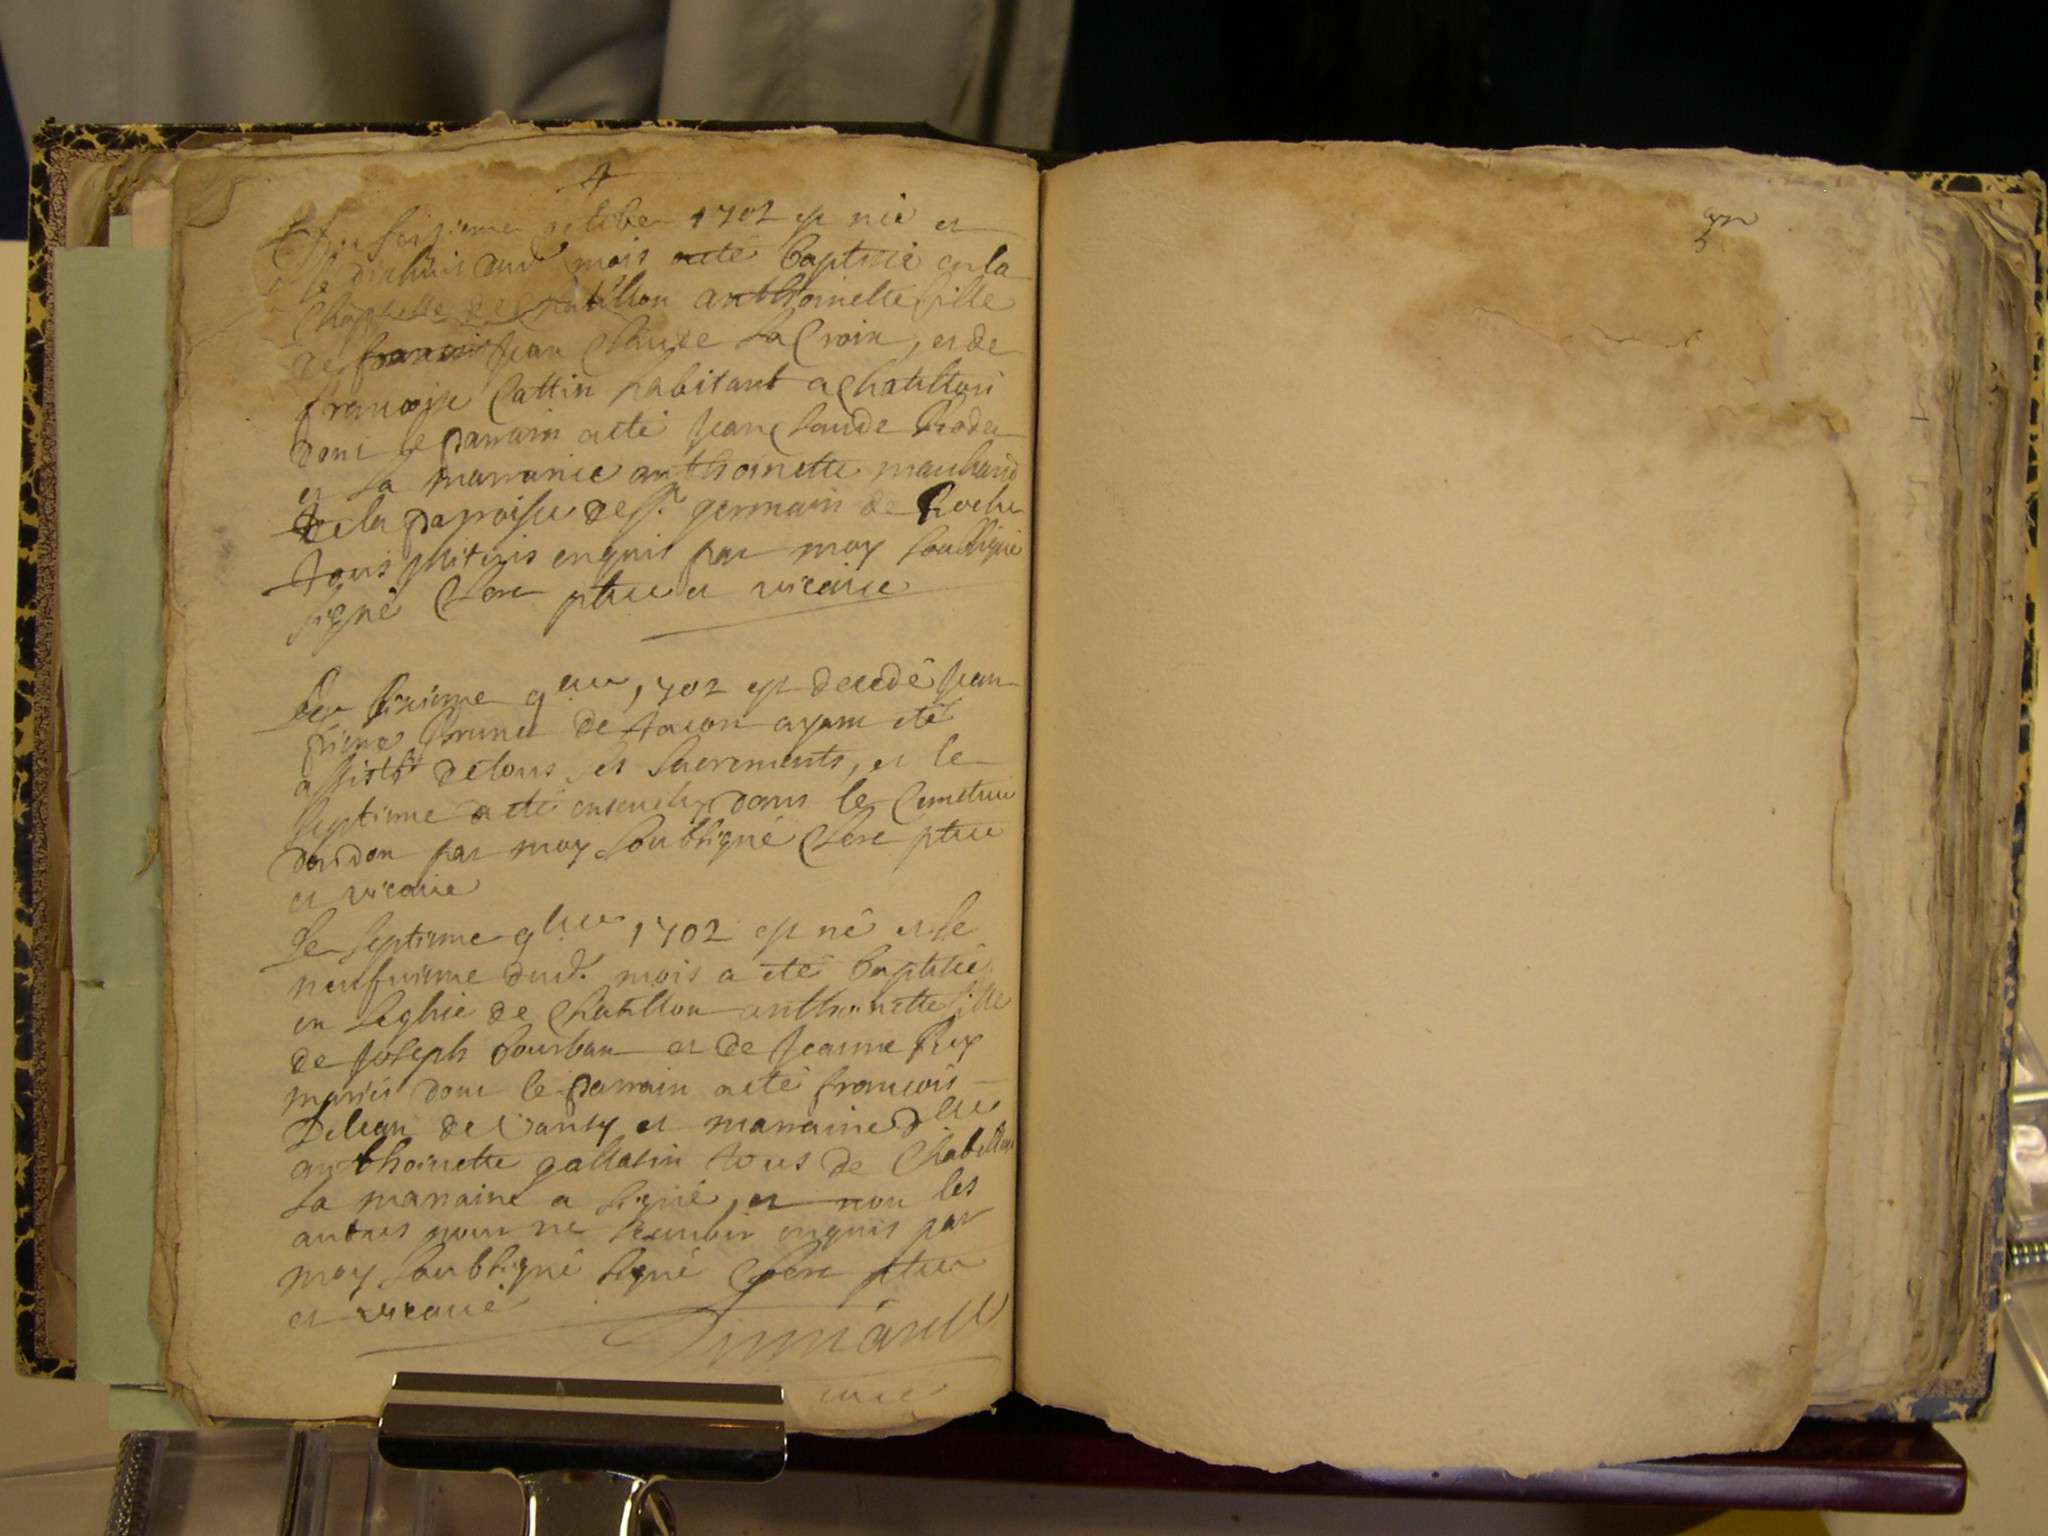 4
octobre 1702 est née et
le dixhuit dud. mois a eté baptisée en la
Chappelle de Chatillon anthoinette fille
de francois Jean Claude La Croix, et de
francoise Cattin habitant a Chatillon
dont le parrain a eté Jean Claude
et La marraine anthoinette marchand
de la paroisse de St. germain de
tous enquis par moy soubsigné
signé Clere ptre et vicaire
Le sixieme 9bre 1702 est decedé Jean
pierre Brunet de tacon ayant eté
assisté de tous les Sacrements, et le
septieme a eté ensevely dans le Cimetiere
dardon par moy Soubsigné Clere ptre
et vicaire
Le septieme 9bre 1702 est né et le
neufvieme dud. mois a eté baptisée
en Leglise de Chatillon anthoinette fille
de Joseph bourban et de Jeanne Rey
mariés dont le parrain a eté francois
de et marraine dlle
anthoinette gallatin tous de Chatillon
La marraine a signé, et non les
autres pour ne scavoir enquis par
moy Soubsigné signé Clere ptre
et vicaire
curé